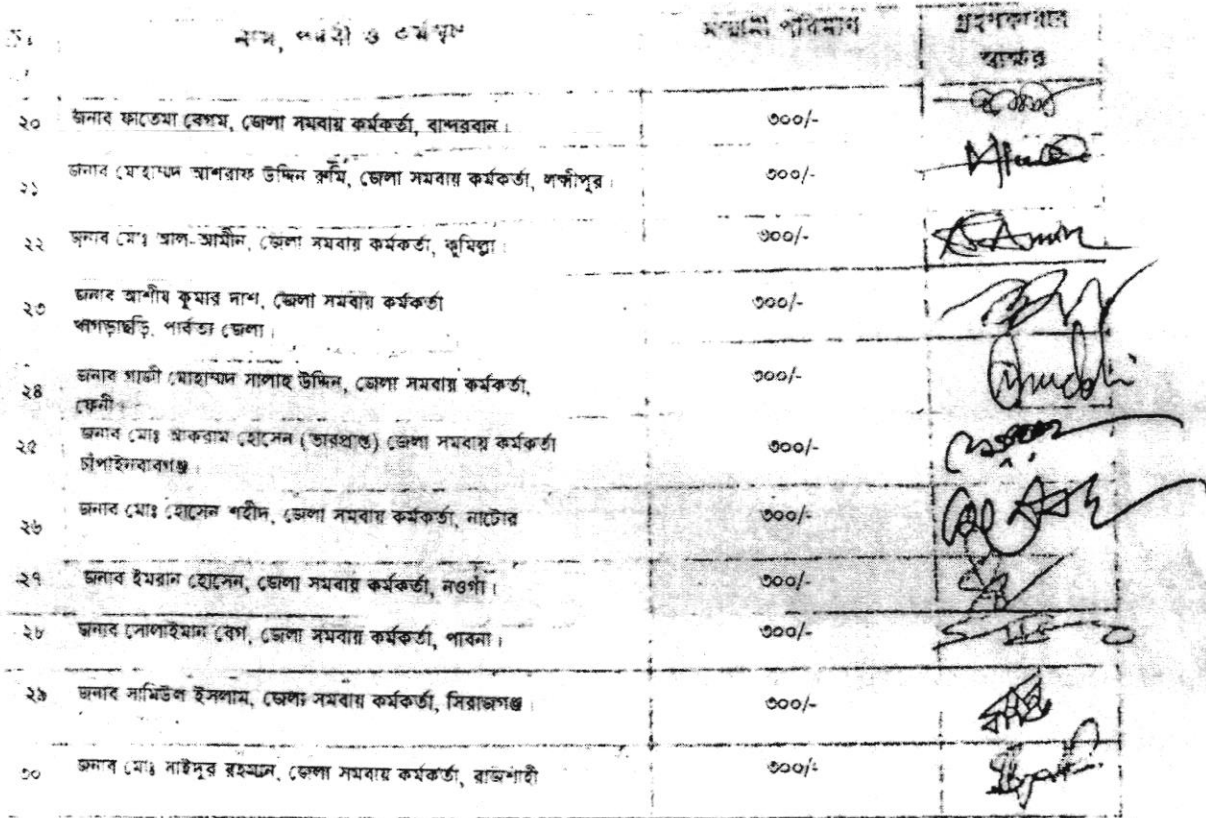 নাম, পদবী ও কর্মস্থল সম্মানী পরিমাণ গ্রহণকারীর
স্বাক্ষর
২০ জনাব ফাতেমা বেগম, জেলা সমবায় কর্মকর্তা, বান্দরবান। ৩০০/-
২১ জনাব মোহাম্মদ আশরাফ উদ্দিন রুমি, জেলা সমবায় কর্মকর্তা, লক্ষ্মীপুর। ৩০০/-
২২ জনাব মোঃ আল-আমীন, জেলা সমবায় কর্মকর্তা, কুমিল্লা। ৩০০/- Amin
২৩ জনাব আশীষ কুমার দাশ, জেলা সমবায় কর্মকর্তা ৩০০/-
খাগড়াছড়ি, পার্বত্য জেলা।
২৪ জনাব গাজী মোহাম্মদ সালাহ উদ্দিন, জেলা সমবায় কর্মকর্তা, ৩০০/-
ফেনী।
২৫ জনাব মোঃ আকরাম হোসেন (ভারপ্রাপ্ত) জেলা সমবায় কর্মকর্তা ৩০০/-
চাঁপাইনবাবগঞ্জ।
২৬ জনাব মোঃ হোসেন শহীদ, জেলা সমবায় কর্মকর্তা, নাটোর ৩০০/-
২৭ জনাব ইমরান হোসেন, জেলা সমবায় কর্মকর্তা, নওগাঁ। ৩০০/-
২৮ জনাব সোলাইমান বেগ, জেলা সমবায় কর্মকর্তা, পাবনা। ৩০০/-
২৯ জনাব সামিউল ইসলাম, জেলা সমবায় কর্মকর্তা, সিরাজগঞ্জ। ৩০০/-
৩০ জনাব মোঃ সাইদুর রহমান, জেলা সমবায় কর্মকর্তা, রাজশাহী ৩০০/-